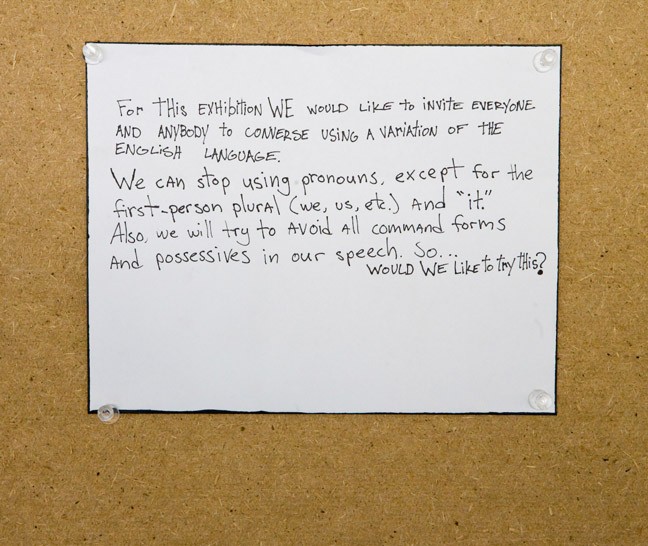 For THis EXHIBITION WE WOULD LIKE to INVITE EVERYONE
AND ANYBODY to CONVERSE USING A VARIATION OF THE
ENGLISH LANGUAGE.
We can stop using pronouns, except for the
first-person plural (we, us, etc.) And "it."
Also, we will try to Avoid All command forms
And possessives in our speech. So...
WOULD WE LIKE to try this?